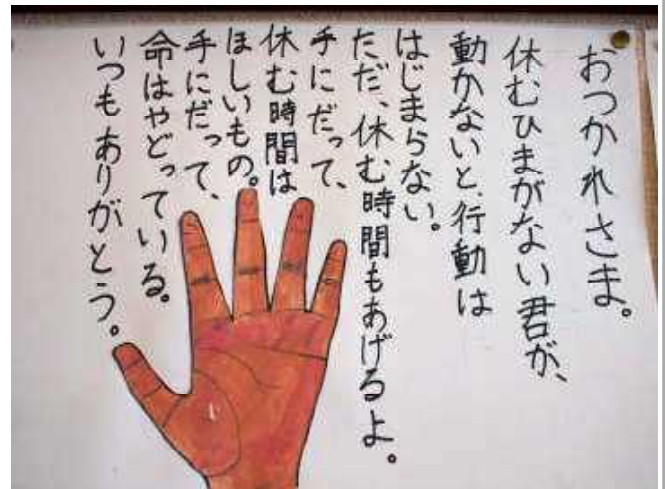 おつかれさま。
休むひまがない君が、
動かないと、行動は
はじまらない。
ただ、休む時間もあげるよ。
手にだって、
休む時間は
ほしいもの。
手にだって、
命はやどっている。
いつもありがとう。